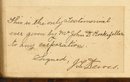 This is the only testimonial
ever given by Mr John D. Rockefeller
to any corporation.
Signed,